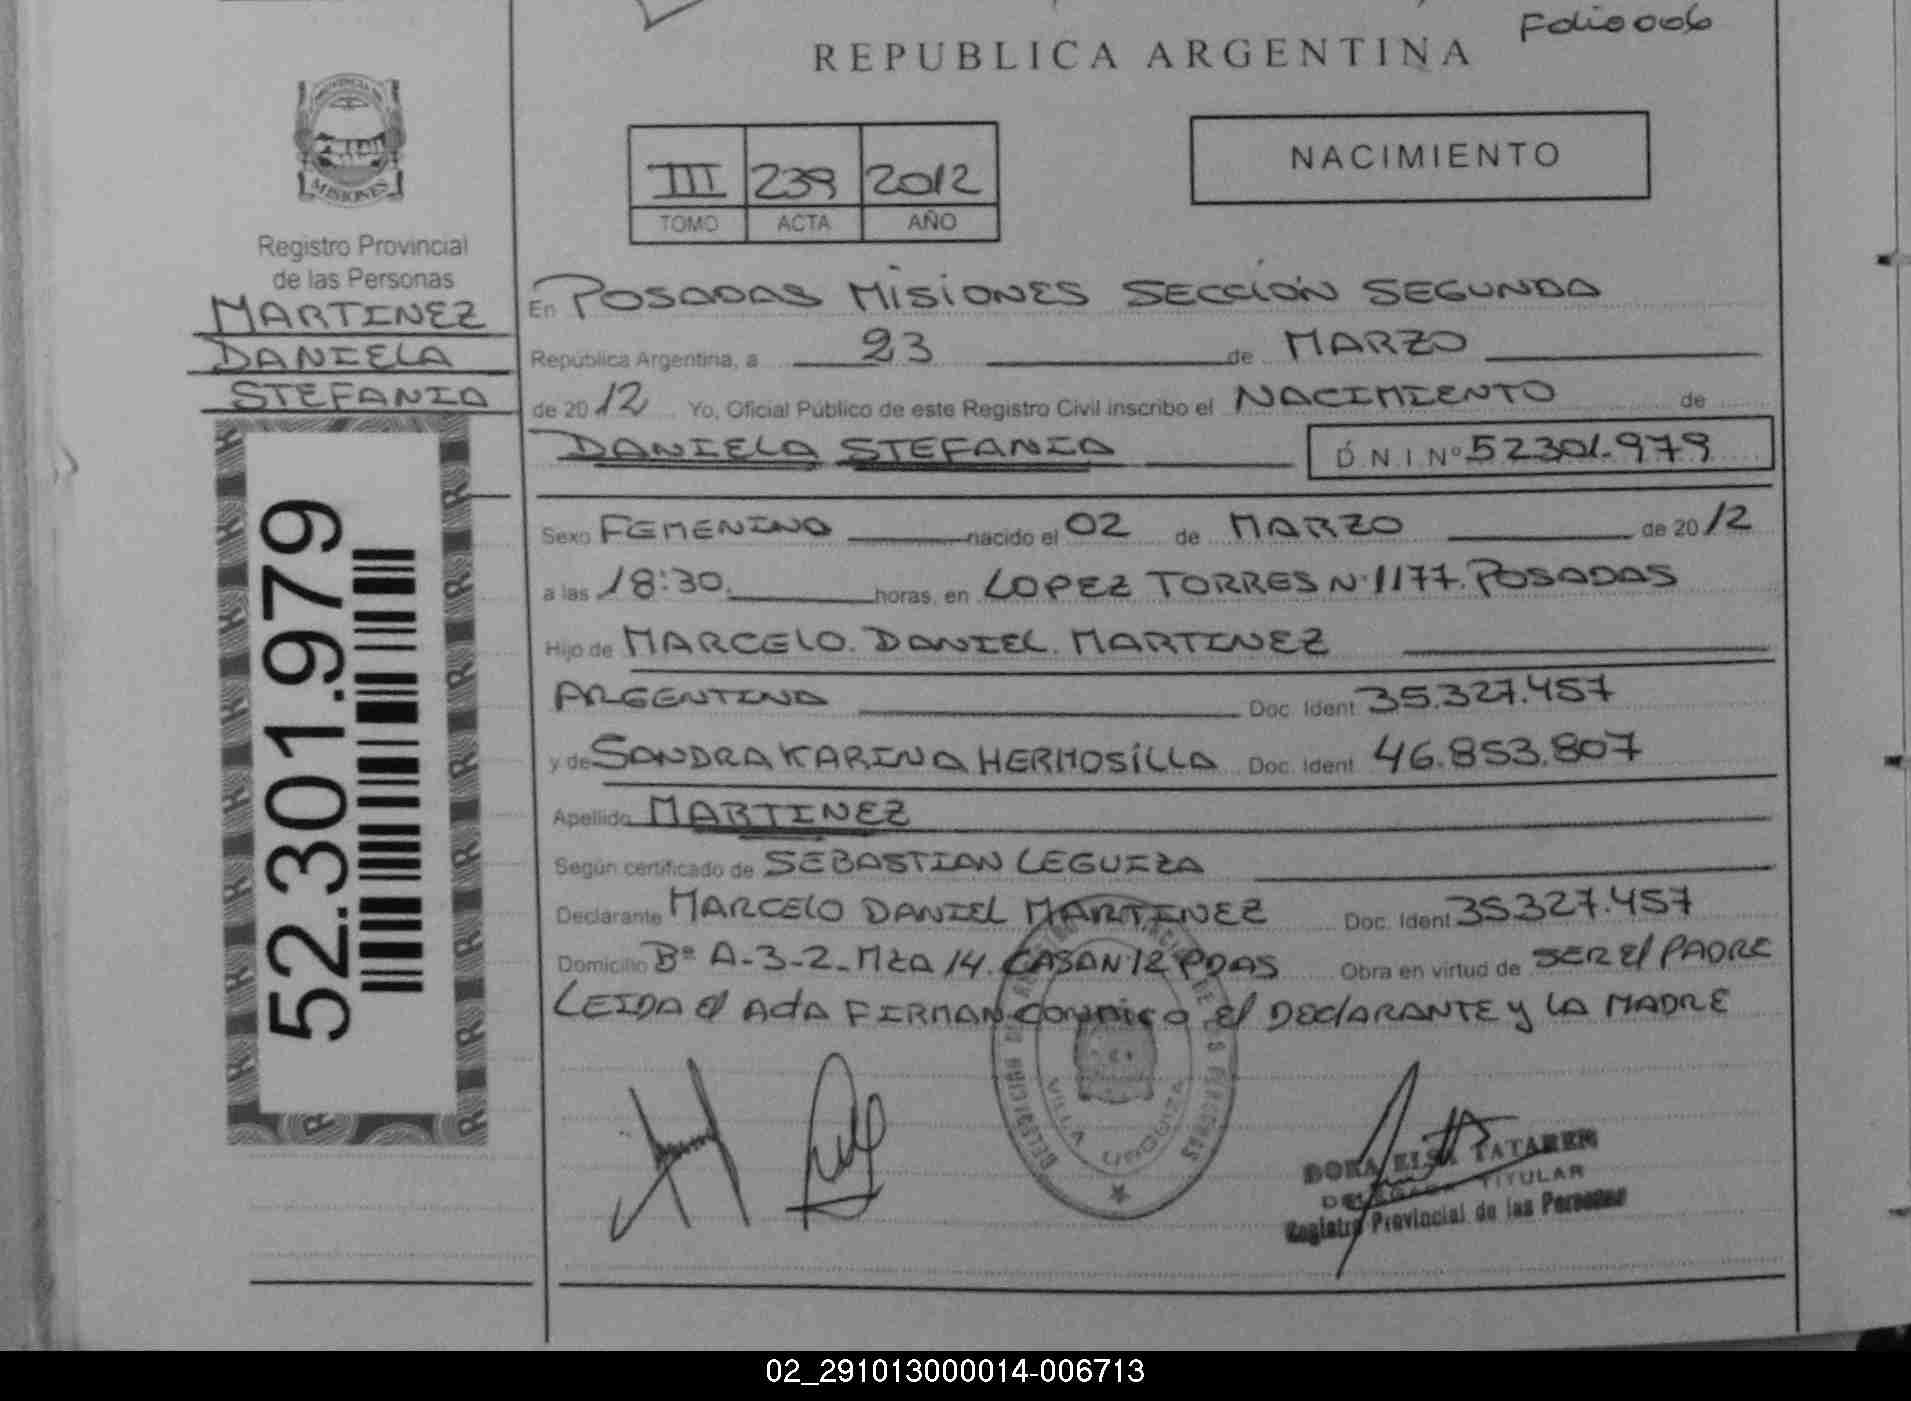 Folio 006
REPUBLICA ARGENTINA
PROVINCIA DE
MISIONES
III 239 2012
TOMO ACTA AÑO
NACIMIENTO
Registro Provincial
de las Personas
MARTINEZ
DANIELA
STEFANIA
52.301.979
En POSADAS MISIONES SECCION SEGUNDA
República Argentina, a 23 de MARZO
de 2012 Yo, Oficial Público de este Registro Civil inscribo el NACIMIENTO de
DANIELA STEFANIA D.N.I Nº 52301.979
Sexo FEMENINO nacido el 02 de MARZO de 2012
a las 18:30. horas, en LOPEZ TORRES N·1177. POSADAS
Hijo de MARCELO. DANIEL. MARTINEZ
ARGENTINA Doc. Ident 35.327.457
y de SANDRA KARINA HERMOSILLA Doc. Ident 46.853.807
Apellido MARTINEZ
Según certificado de SEBASTIAN LEGUIZA
Declarante MARCELO DANIEL MARTINEZ Doc. Ident 35327.457
Domicilio Bº A-3-2-Mza 14. CASA N·12 PDAS Obra en virtud de SER El PADRE
LEIDA el ActA FIRMAN conmigo El DEClARANTE y LA MADRE
VILLA URQUIZA
DORA ELSA TATAREN
DELEGADA TITULAR
Registro Provincial de las Personas
02_291013000014-006713